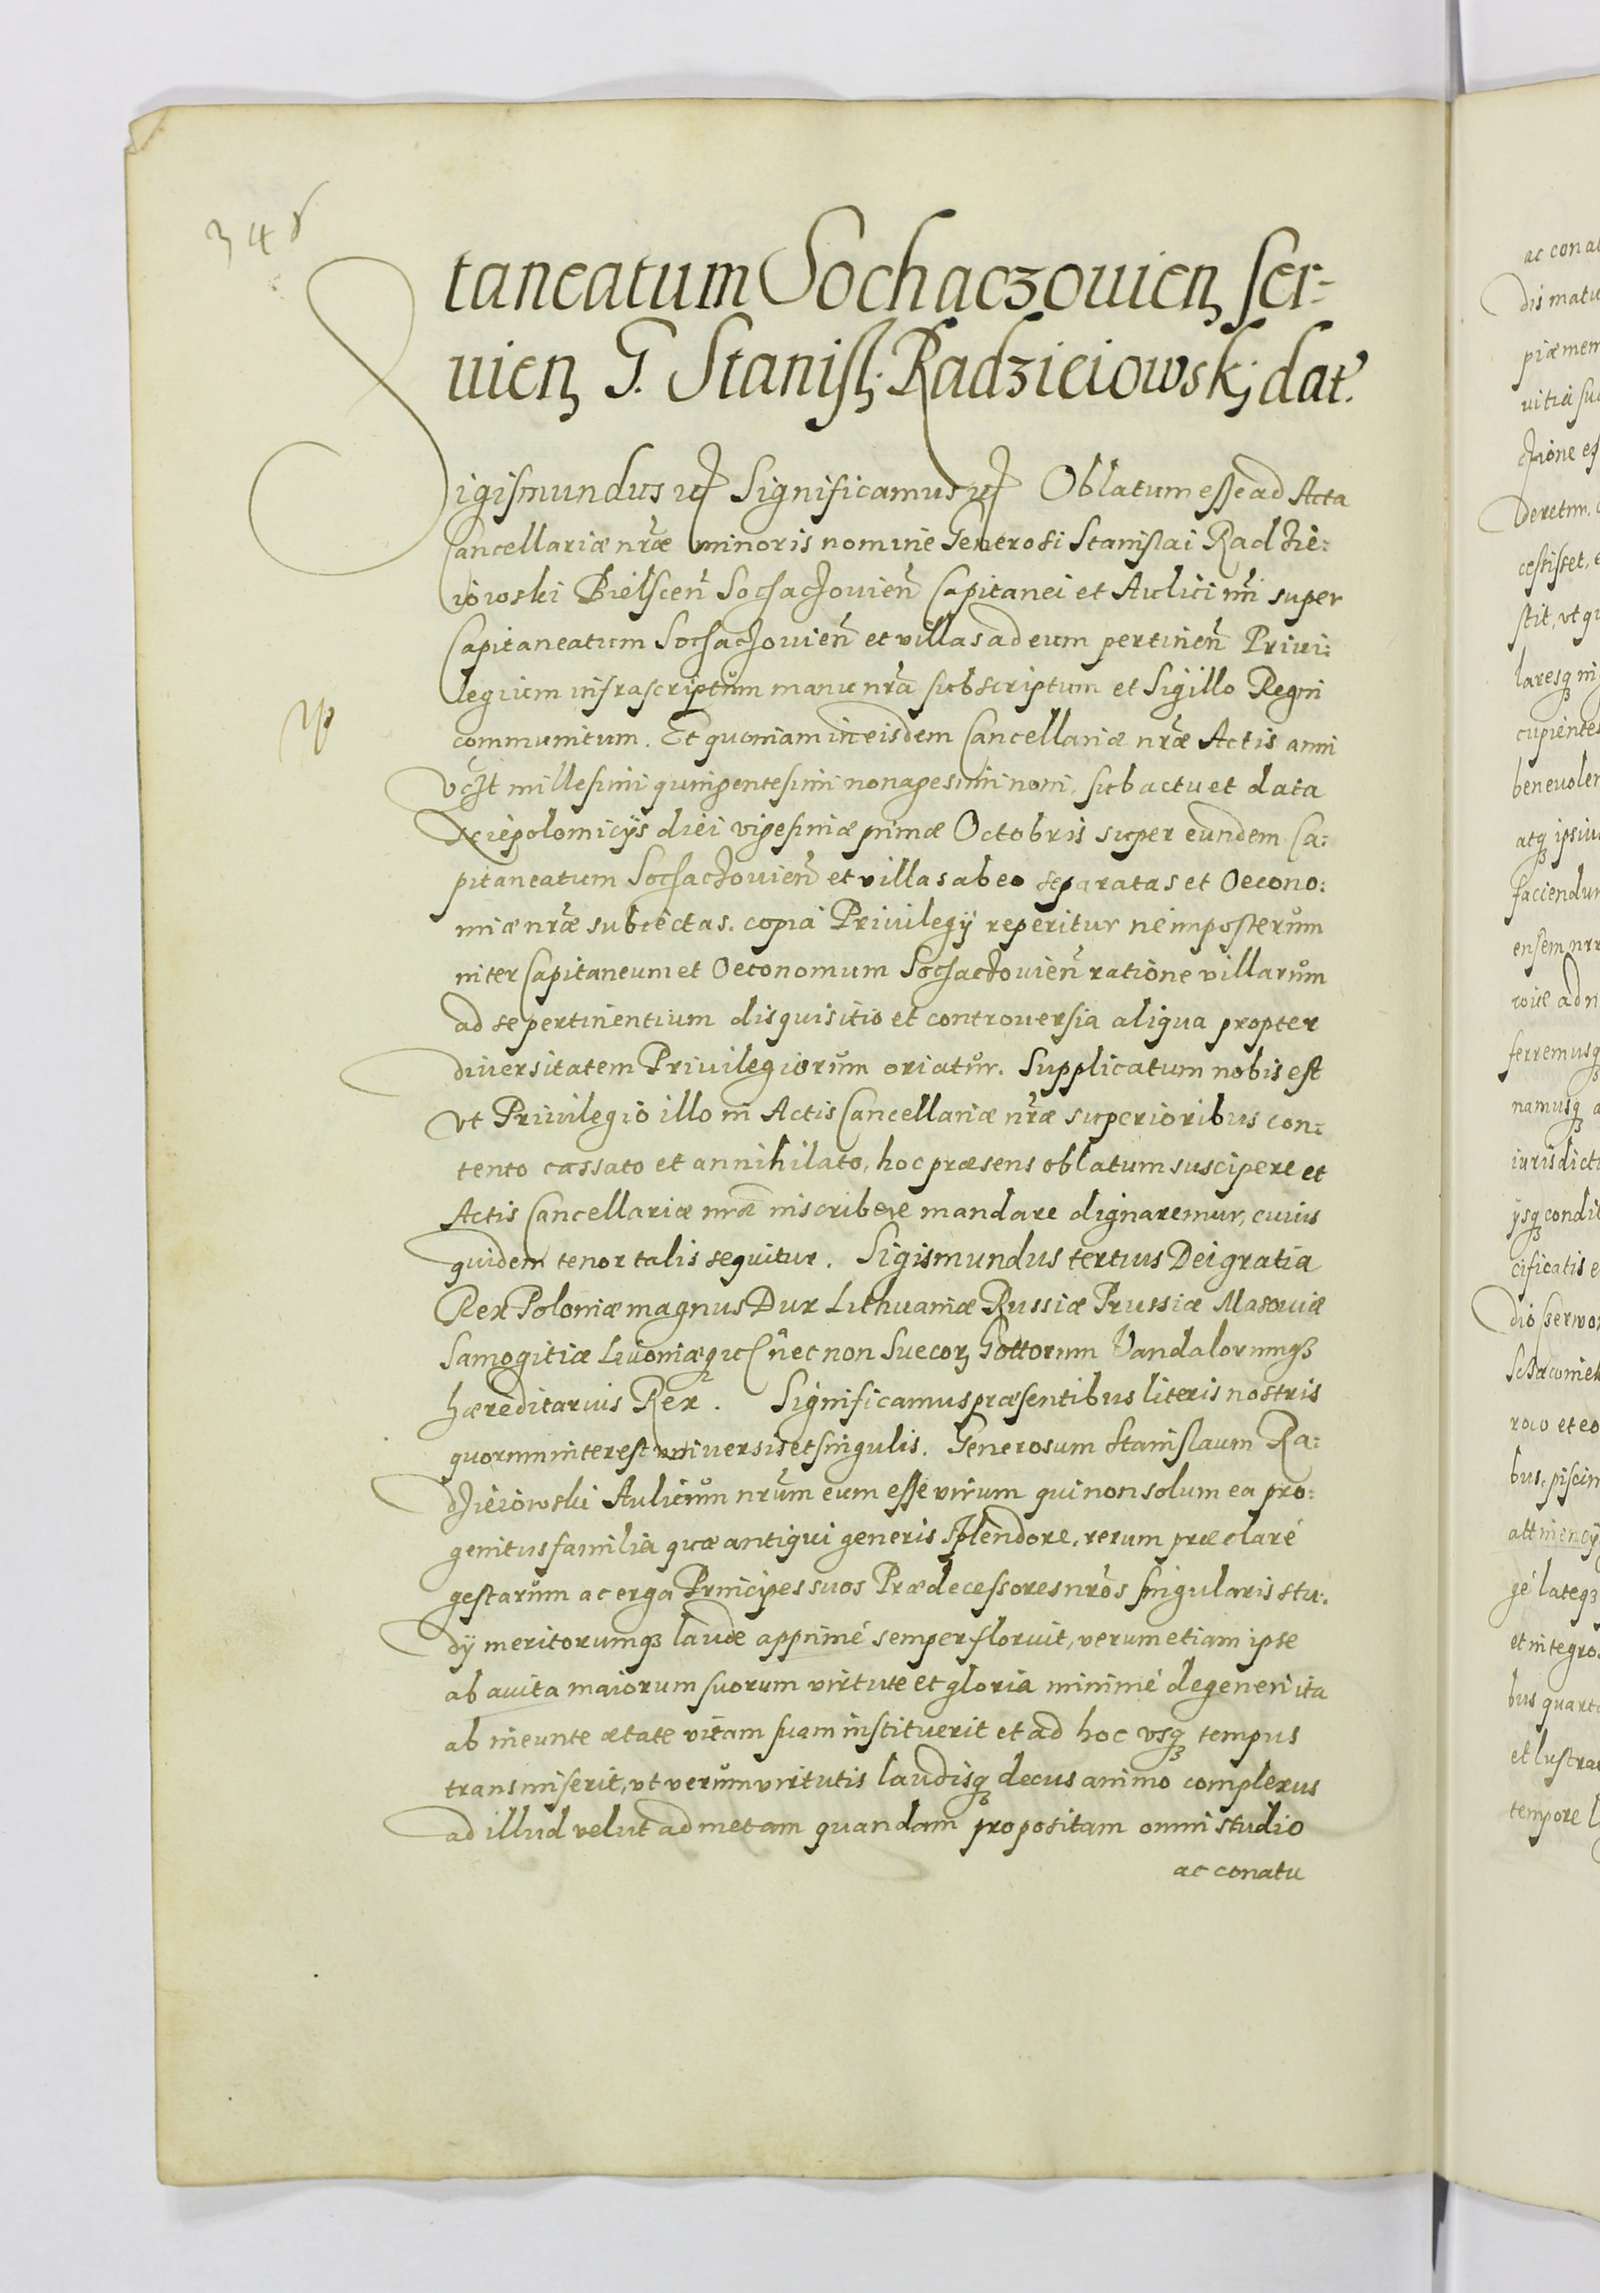 348
taneatum Sochaczouien ser-
uien G. Stanisl. Radzieiowsk; dat.
Sigismundus etc Significamus etc Oblatum esse ad Acta
Cancellariæ nr̃æ minoris nomine Generosi Stanislai Radzie:
iowski Bielscen̄ Sochaczouien̄ Capitanei et Aulici nr̃i super
Capitaneatum Sochaczouien̄ et villas ad eum pertinen̄ Priui:
legium infrascriptům manu nr̃a subscriptum et Sigillo Regni
communitum. Et quoniam in eisdem Cancellariæ nr̃æ Actis anni
millesimi quingentesimi nonagesimi noni, sub actu et data
Niepolomicijs diei vigesimæ primæ Octobris super eundem Ca:
pitaneatum Sochaczouien̄ et villas ab eo separatas et Oecono:
miæ nr̃æ subiectas. copia Priuilegij reperitur ne imposterům
inter Capitaneum et Oeconomum Sochaczouien̄ ratione villarům
ad se pertinentium disquisitio et controuersia aliqua propter
diuersitatem Priuilegiorům oriatůr. Supplicatum nobis est
vt Priuilegio illo in Actis Cancellariæ nr̃æ superioribus con:
tento cassato et annihilato, hoc præsens oblatum suscipere et
Actis Cancellariæ nr̃æ inscribere mandare dignaremur, cuius
quidem tenor talis sequitur. Sigismundus tertius Dei gratia
Rex Poloniæ magnus Dux Lithuaniæ Russiæ Prussiæ Masouiæ
Samogitiæ Liuoniæq; etc nec non Suecor Gottorum Vandalorumq;
hæreditarius Rex. Significamus præsentibus literis nostris
quorum interest vniuersis et singulis. Generosum Stanislaum Ra:
dzieiowski Aulicům nr̃um eum esse virum qui non solum ea pro:
genitus familia quæ antiqui generis splendore, rerum præclaré
gestarům ac erga Principes suos Prædecessores nr̃os singularis stu:
dij meritorumq; laude apprimé semper floruit, verum etiam ipse
ab auita maiorum suorum virtute et gloria minimé degener ita
ab ineunte ætate vitam suam instituerit et ad hoc vsq; tempus
transmiserit, vt verům virtutis laudisq; decus animo complexus
ad illud velut ad metam quandam propositam omni studio
ac conatu
ac cona
dis matu
piæ mem
deretur
cestisset,
stit, vt qu
laresq; in
cupientes
beneuolen
atq; ipsiu
faciendum
ferremusq;
namusq; a
iurisdict
ijsq; condi
cificatis e
bus, piscin
gé lateq;
et integro
bus quart
et lustra
tempore